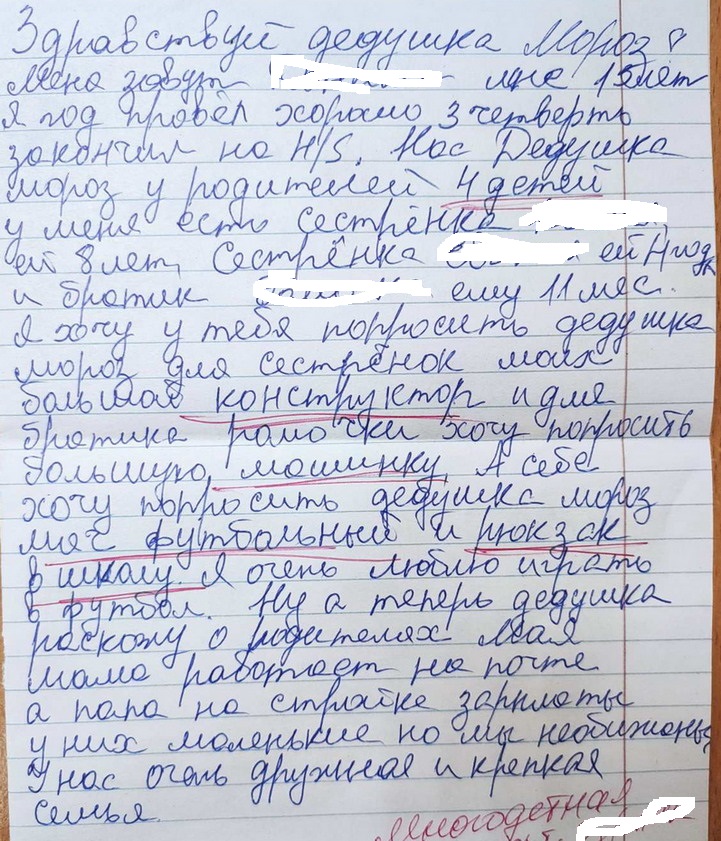 Здравствуй дедушка Мороз
Меня завут мне 15 лет
я год провёл хорошо 3 четверть
закончил на 4/5. Нас Дедушка
мороз у родителей 4 детей
у меня есть сестрёнка
ей 8 лет, Сестрёнка ей 4 год
и братик ему 11 мес.
я хочу у тебя порросить дедушка
мороз для сестрёнок моих
большой конструктор и для
братика хочу попросить
большую машинку А себе
хочу порросить дедушка мороз
мяч футбольный и рюкзак
в школу. Я очень люблю играть
в футбол. Ну а теперь дедушка
раскожу о родителях Моя
мама работает на почте
а папа на стройке зарплаты
у них маленькие но мы необижаны
У нас очень дружная и крепкая
семья.
многодетная